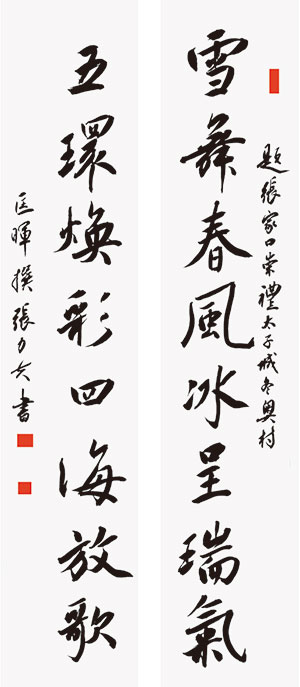 題張家口崇禮太子城冬奧村
雪舞春風冰呈瑞氣
五環煥彩四海放歌
匡暉撰張力夫書